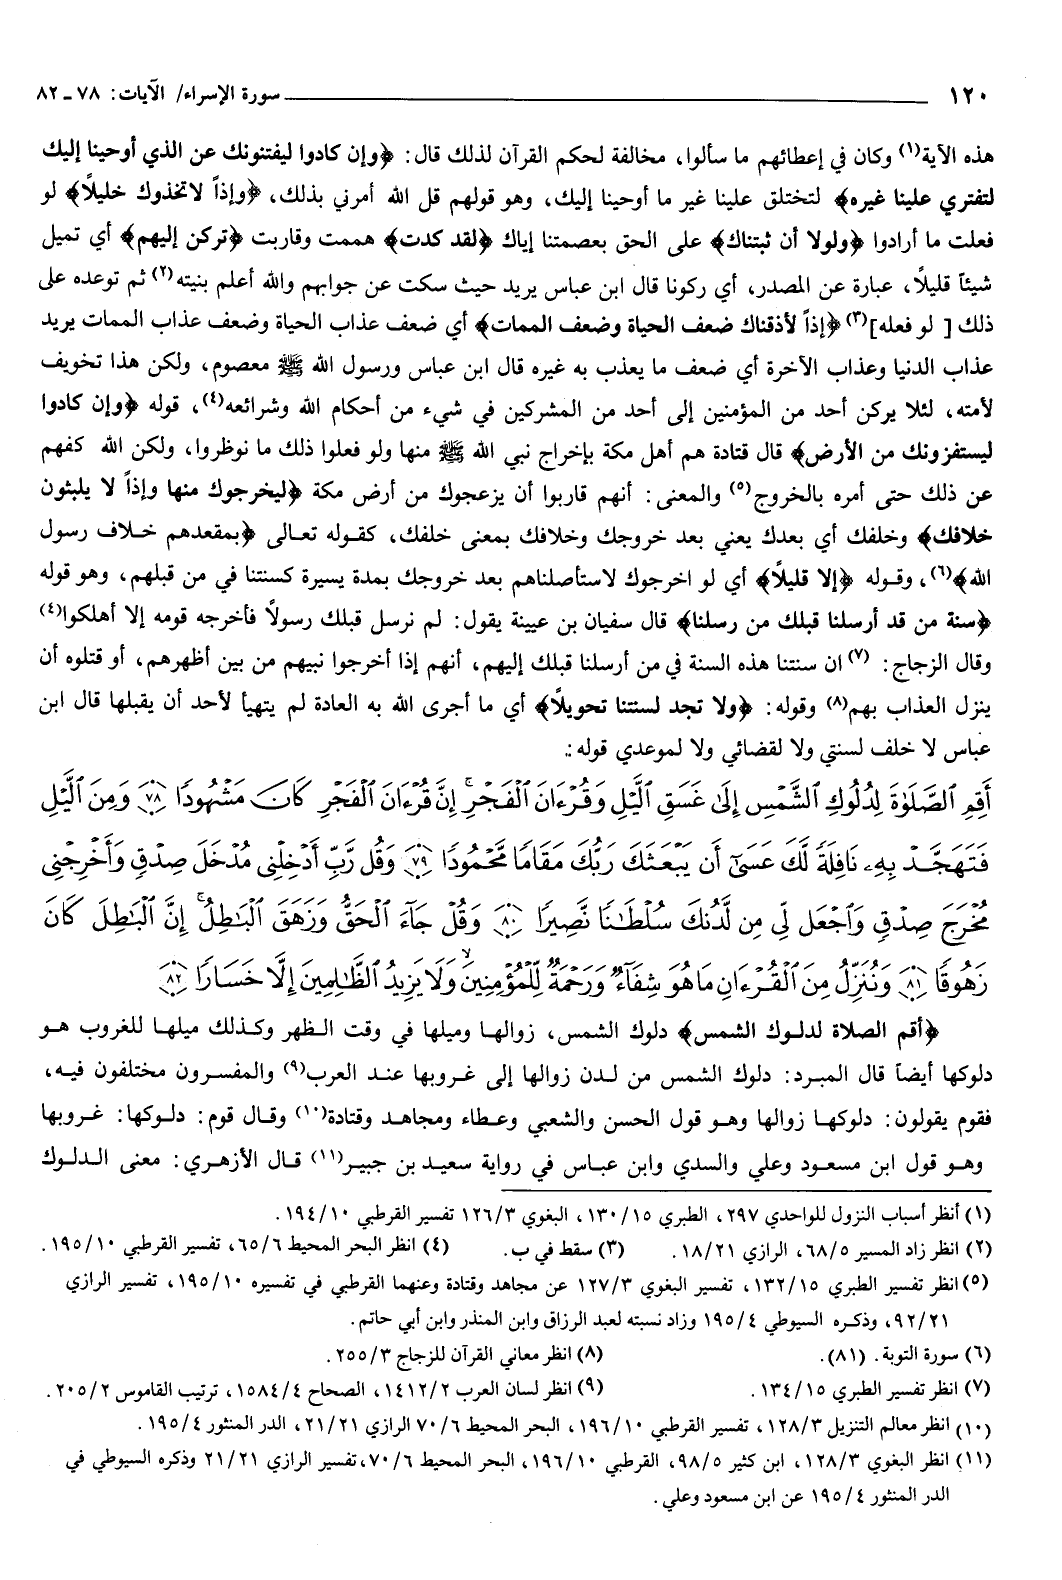 ١٢٠ سورة الإسراء/ الآيات: ٧٨ ـ ٨٢
هذه الآية(١) وكان في إعطائهم ما سألوا، مخالفة لحكم القرآن لذلك قال: ﴿وإن كادوا ليفتنونك عن الذي أوحينا إليك
لتفتري علينا غيره﴾ لتختلق علينا غير ما أوحينا إليك، وهو قولهم قل الله أمرني بذلك، ﴿وإذاً لاتخذوك خليلاً﴾ لو
فعلت ما أرادوا ﴿ولولا أن ثبتناك﴾ على الحق بعصمتنا إياك ﴿لقد كدت﴾ هممت وقاربت ﴿تركن إليهم﴾ أي تميل
شيئاً قليلاً، عبارة عن المصدر، أي ركونا قال ابن عباس يريد حيث سكت عن جوابهم والله أعلم بنيته(٢) ثم توعده على
ذلك [ لو فعله](٣) ﴿إذاً لأذقناك ضعف الحياة وضعف الممات﴾ أي ضعف عذاب الحياة وضعف عذاب الممات يريد
عذاب الدنيا وعذاب الآخرة أي ضعف ما يعذب به غيره قال ابن عباس ورسول الله ﷺ معصوم، ولكن هذا تخويف
لأمته، لئلا يركن أحد من المؤمنين إلى أحد من المشركين في شيء من أحكام الله وشرائعه(٤)، قوله ﴿وإن كادوا
ليستفزونك من الأرض﴾ قال قتادة هم أهل مكة بإخراج نبي الله ﷺ منها ولو فعلوا ذلك ما نوظروا، ولكن الله كفهم
عن ذلك حتى أمره بالخروج(٥) والمعنى: أنهم قاربوا أن يزعجوك من أرض مكة ﴿ليخرجوك منها وإذاً لا يلبثون
خلافك﴾ وخلفك أي بعدك يعني بعد خروجك وخلافك بمعنى خلفك، كقوله تعالى ﴿بمقعدهم خلاف رسول
الله﴾(٦)، وقوله ﴿إلا قليلاً﴾ أي لو اخرجوك لاستأصلناهم بعد خروجك بمدة يسيرة كسنتنا في من قبلهم، وهو قوله
﴿سنة من قد أرسلنا قبلك من رسلنا﴾ قال سفيان بن عيينة يقول: لم نرسل قبلك رسولاً فأخرجه قومه إلا أهلكوا(٤)
وقال الزجاج: (٧) ان سنتنا هذه السنة في من أرسلنا قبلك إليهم، أنهم إذا أخرجوا نبيهم من بين أظهرهم، أو قتلوه أن
ينزل العذاب بهم(٨) وقوله: ﴿ولا تجد لسنتنا تحويلاً﴾ أي ما أجرى الله به العادة لم يتهيأ لأحد أن يقبلها قال ابن
عباس لا خلف لسنتي ولا لقضائي ولا لموعدي قوله:.
أَقِمِ ٱلصَّلَوٰةَ لِدُلُوكِ ٱلشَّمْسِ إِلَىٰ غَسَقِ ٱلَّيْلِ وَقُرْءَانَ ٱلْفَجْرِ ۖ إِنَّ قُرْءَانَ ٱلْفَجْرِ كَانَ مَشْهُودًا ﴿٧٨﴾ وَمِنَ ٱلَّيْلِ
فَتَهَجَّدْ بِهِۦ نَافِلَةً لَّكَ عَسَىٰٓ أَن يَبْعَثَكَ رَبُّكَ مَقَامًا مَّحْمُودًا ﴿٧٩﴾ وَقُل رَّبِّ أَدْخِلْنِى مُدْخَلَ صِدْقٍ وَأَخْرِجْنِى
مُخْرَجَ صِدْقٍ وَٱجْعَل لِّى مِن لَّدُنكَ سُلْطَٰنًا نَّصِيرًا ﴿٨٠﴾ وَقُلْ جَآءَ ٱلْحَقُّ وَزَهَقَ ٱلْبَٰطِلُ ۚ إِنَّ ٱلْبَٰطِلَ كَانَ
زَهُوقًا ﴿٨١﴾ وَنُنَزِّلُ مِنَ ٱلْقُرْءَانِ مَا هُوَ شِفَآءٌ وَرَحْمَةٌ لِّلْمُؤْمِنِينَ ۙ وَلَا يَزِيدُ ٱلظَّٰلِمِينَ إِلَّا خَسَارًا ﴿٨٢﴾
﴿أقم الصلاة لدلوك الشمس﴾ دلوك الشمس، زوالها وميلها في وقت الظهر وكذلك ميلها للغروب هو
دلوكها أيضاً قال المبرد: دلوك الشمس من لدن زوالها إلى غروبها عند العرب(٩) والمفسرون مختلفون فيه،
فقوم يقولون: دلوكها زوالها وهو قول الحسن والشعبي وعطاء ومجاهد وقتادة(١٠) وقال قوم: دلوكها: غروبها
وهو قول ابن مسعود وعلي والسدي وابن عباس في رواية سعيد بن جبير(١١) قال الأزهري: معنى الدلوك
(١) أنظر أسباب النزول للواحدي ٢٩٧، الطبري ١٣٠/١٥، البغوي ١٢٦/٣ تفسير القرطبي ١٩٤/١٠.
(٢) انظر زاد المسير ٦٨/٥، الرازي ١٨/٢١. (٣) سقط في ب. (٤) انظر البحر المحيط ٦٥/٦، تفسير القرطبي ١٩٥/١٠.
(٥) انظر تفسير الطبري ١٣٢/١٥، تفسير البغوي ١٢٧/٣ عن مجاهد وقتادة وعنهما القرطبي في تفسيره ١٩٥/١٠، تفسير الرازي
٩٢/٢١، وذكره السيوطي ١٩٥/٤ وزاد نسبته لعبد الرزاق وابن المنذر وابن أبي حاتم.
(٦) سورة التوبة. (٨١). (٨) انظر معاني القرآن للزجاج ٢٥٥/٣.
(٧) انظر تفسير الطبري ١٣٤/١٥. (٩) انظر لسان العرب ١٤١٢/٢، الصحاح ١٥٨٤/٤، ترتيب القاموس ٢٠٥/٢.
(١٠) انظر معالم التنزيل ١٢٨/٣، تفسير القرطبي ١٩٦/١٠، البحر المحيط ٧٠/٦ الرازي ٢١/٢١، الدر المنثور ١٩٥/٤.
(١١) انظر البغوي ١٢٨/٣، ابن كثير ٩٨/٥، القرطبي ١٩٦/١٠، البحر المحيط ٧٠/٦،تفسير الرازي ٢١/٢١ وذكره السيوطي في
الدر المنثور ١٩٥/٤ عن ابن مسعود وعلي.